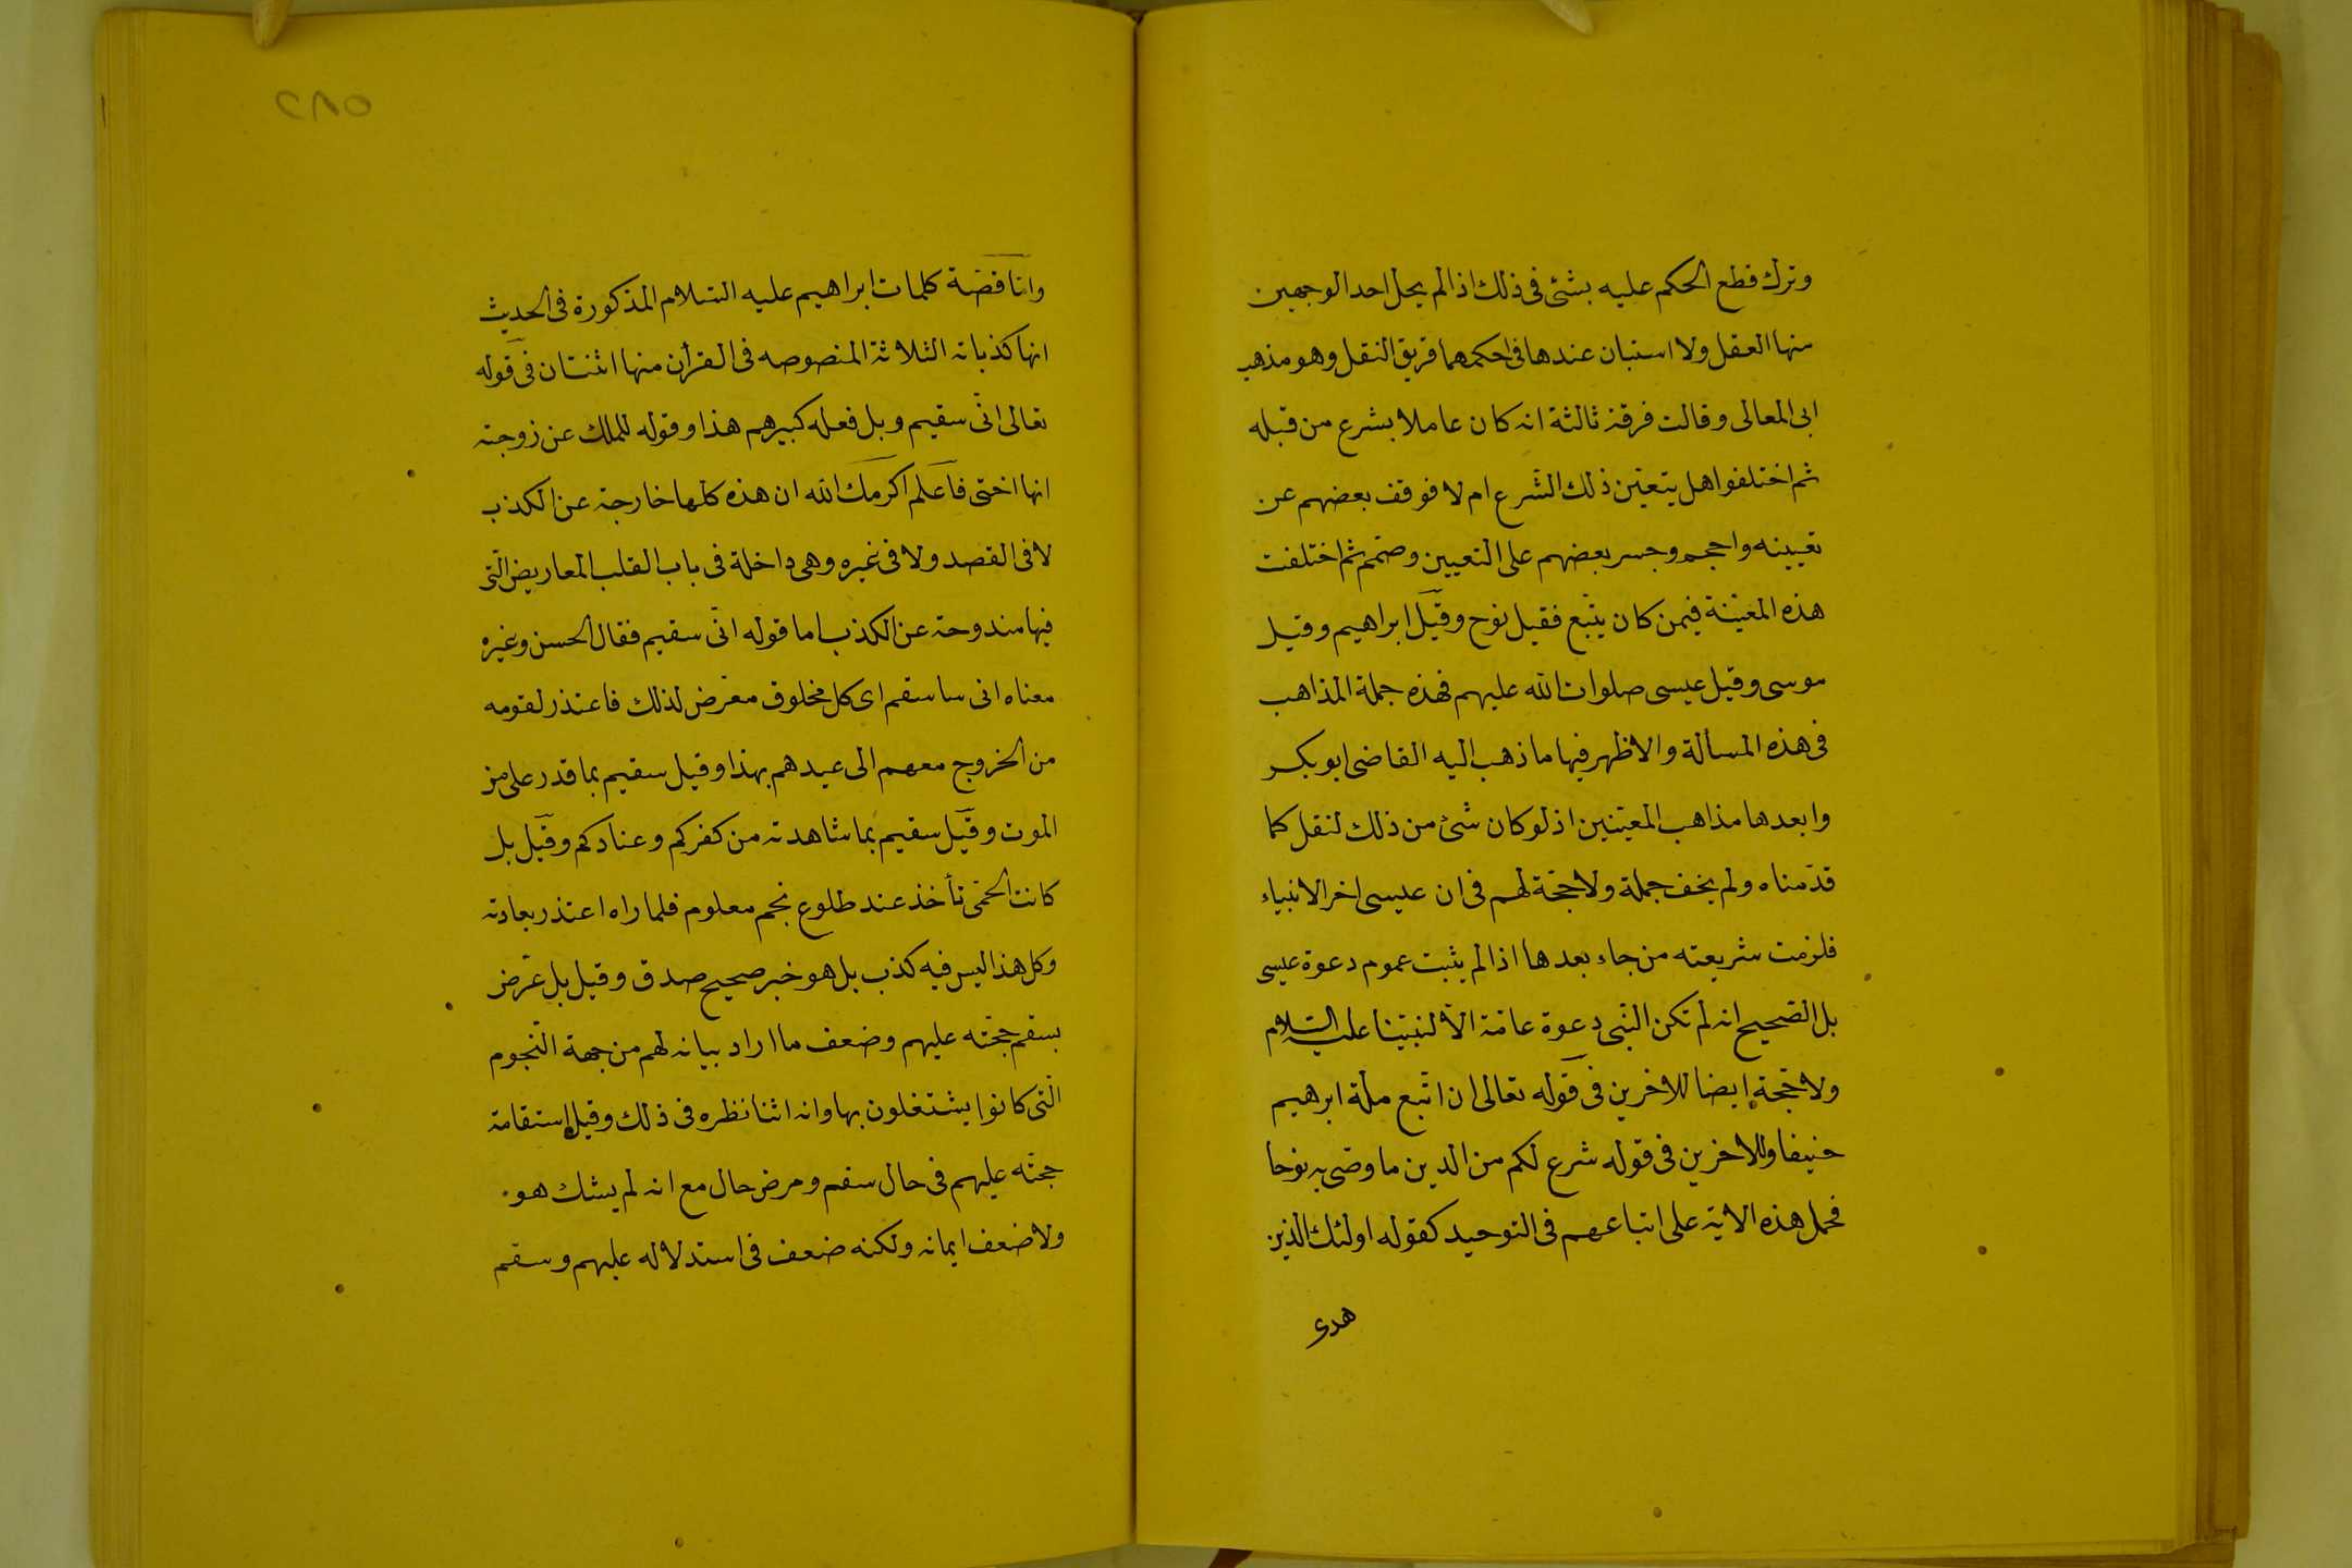 وترك قطع الحكم عليه بشئ فى ذلك اذ الم يحل احد الوجهين
منها العقل ولا استبان عندها فى احكمهما فريق النقل وهو مذهب
ابى المعالى وقالت فرقة ثالثة انه كان عاملا بشرع من قبله
ثم اختلفوا هل يتعيّن ذلك الشرع ام لا فوقف بعضهم عن
تعيينه واحجم وجسر بعضهم على التعيين وصمّم ثم اختلفت
هذه المعيّنة فيمن كان يتّبع فقيل نوح وقيل ابراهيم وقيل
موسى وقيل عيسى صلوات الله عليهم فهذه جملة المذاهب
فى هذه المسألة والاظهر فيها ما ذهب اليه القاضى ابو بكر
وابعدها مذاهب المعيّنين اذ لو كان شئ من ذلك لنقل كما
قدّمناه ولم يخف جملة ولا حجّة لهم فى ان عيسى اخر الانبياء
فلزمت شريعته من جاء بعدها اذا لم يثبت عموم دعوة عيسى
بل الصّحيح انه لم تكن النّبى دعوة عامّة الّا لنبيّنا عليه السّلام
ولا حّجة ايضا للاخرين فى قوله تعالى ان اتّبع ملّة ابرهيم
حنيفا وللاخرين فى قوله شرع لكم من الدين ما وصّى به نوحا
فحمل هذه الاية على اتباعهم فى التوحيد كقوله اولئك الذين
هدى
٢٨٥
وانا قصّة كلمات ابراهيم عليه السّلام المذكورة فى الحديث
انها كذباته الثلاثة المنصوصه فى القرأن منها اثنتان فى قوله
تعالى انّى سقيم وبل فعله كبيرهم هذا وقوله للملك عن زوجته
انها اختى فاعلم اكرمك الله ان هذه كلها خارجة عن الكذب
لا فى القصد ولا فى غيره وهى داخلة فى باب القلب المعاريض الّتى
فيها مندوحة عن الكذب اما قوله انّى سقيم فقال الحسن وغيره
معناه انى ساسقم اى كل مخلوق معّرض لذلك فاعتذر لقومه
من الخروج معهم الى عيدهم بهذا وقيل سقيم بما قدر على من
الموت وقيل سقيم بما شاهدته من كفركم وعنادكم وقيل بل
كانت الحمّى تأخذ عند طلوع نجم معلوم فلما راه اعتذر بعادته
وكل هذا ليس فيه كذب بل هو خبر صحيح صدق وقيل بل عّرض
بسقم حجّته عليهم وضعف ما اراد بيانه لهم من جهة النّجوم
الّتى كانوا يشتغلون بها وانه اثنا نظره فى ذلك وقيل استقامة
حجّته عليهم فى حال سقم ومرض حال مع انه لم يشك هو
ولا ضعف ايمانه ولكنه ضعف فى استدلاله عليهم وسقم